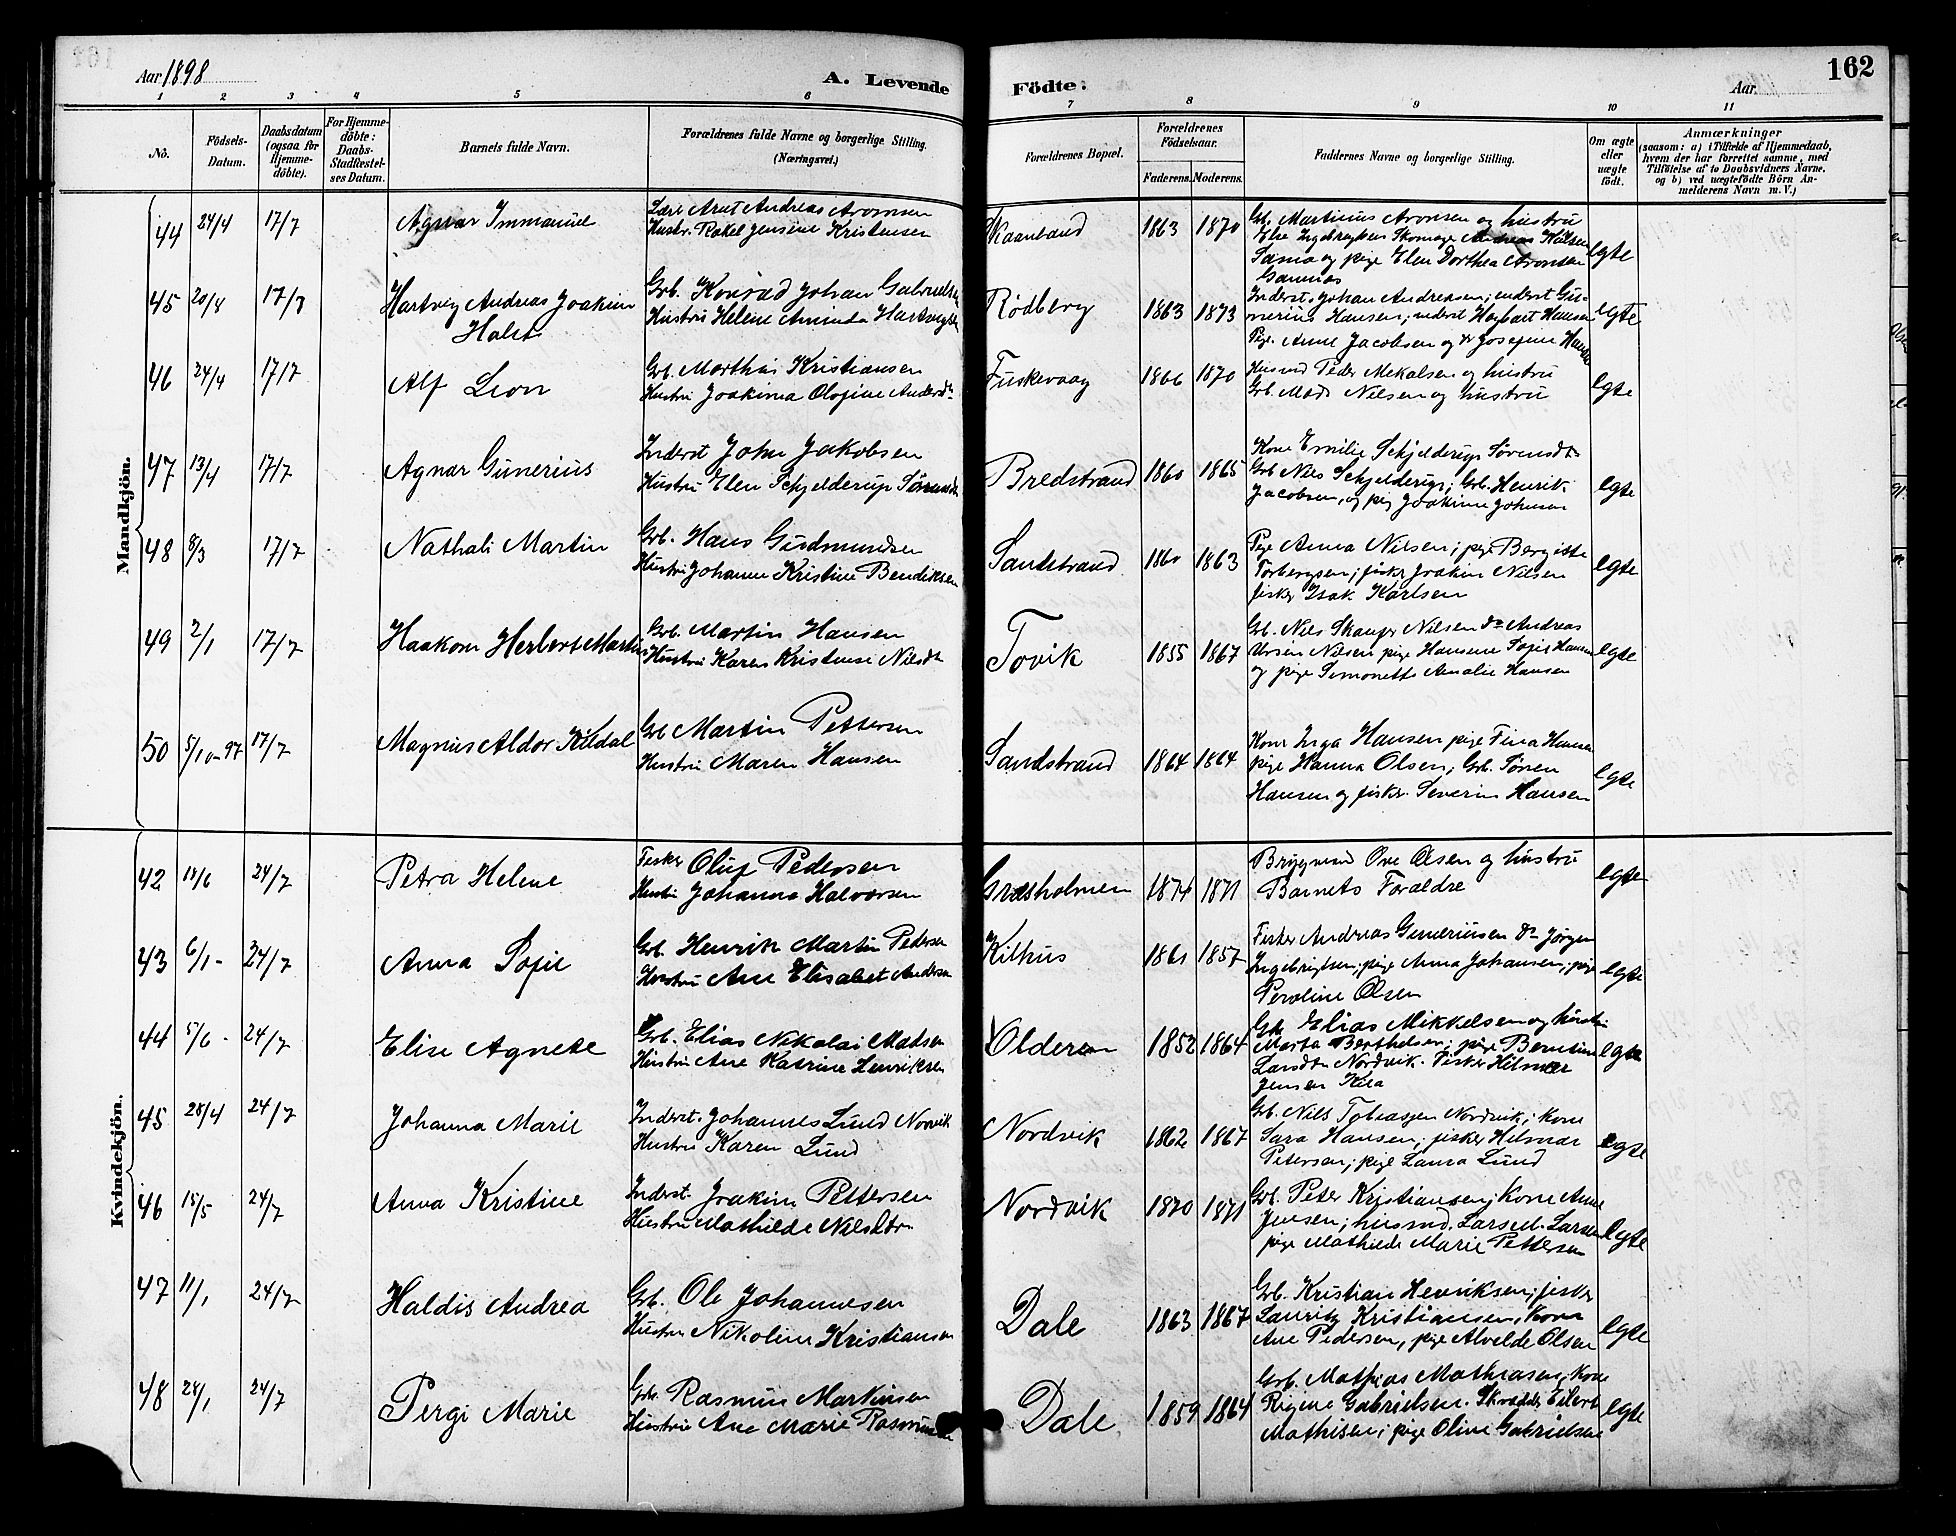 162
Aar 1898
A. Levende Födte:
Aar
1 2 3 4 5 6 7 8 9 10 11
No.
Födsels-Datum.
Daabsdatum (ogsaa for Hjemme-döbte).
For Hjemme-döbte: Daabs-Stadfæstel-ses Datum.
Barnets fulde Navn.
Forældrenes fulde Navne og borgerlige Stilling. (Næringsvei.)
Forældrenes Bopæl.
Forældrenes Födselsaar.
Faderens. Moderens.
Faddernes Navne og borgerlige Stilling.
Om ægte eller uægte födt.
Anmærkninger
(saasom: a) i Tilfælde af Hjemmedaab, hvem der har forrettet samme, med Tilföielse af to Daabsvidners Navne, og b) ved uægtefödte Börn An-melderens Navn m. V.)
Mandkjön.
44 24/4 17/7 Agnar Immanuel
Arnt Andreas Aronsen
Hustr. Rakel Jensine Kristensen
Skaanland 1863 1870
Gb. Martinus Aronsen og hustru
Else Skomager Andreas
og pige Elen Dorthea Aronsen
egte
45 20/4 17/7 Hartvig Andreas Joakim
Holst
Grb. Konrad Johan Gabrielsen
Hustru Helene Amunda Hartvigsen
Rödberg 1863 1873
Inderst. Johan Andreasen; inderst Gu-
nerius Hansen; inderst Hagbart Hansen
Pige Anne Jacobsen og do Josefine Hansen
egte
46 24/4 17/7 Alf Leon
Grb. Morthin Kristiansen
Hustru Joakima Olufine Andersdtr
Fuskevaag 1866 1870
Husmd Peder Mekalsen og hustru
Grb. Mads Nilsen og hustru
egte
47 13/4 17/7 Agnar Gunerius
Inderst John Jakobsen
Hustru Elen Schjelderup Sörensdtr
Bredstrand 1860 1865
Kone Emilie Schjelderup Sörensdtr
Grb Nils Schjelderup; Grb. Henrik
Jacobsen, og pig Joakime Johnsen
egte
48 8/3 17/7 Nathali Martin
Grb. Hans Gudmundsen
Hustru Johanne Kristine Bendiksen
Sandstrand 1860 1863
Pige Anna Nilsen; pige Bergitte
Torbergsen; fisker Joakim Nilsen
fisker Isak Karlsen
egte
49 2/1 17/7 Haakon Herbert Martin
Grb. Martin Hansen
Hustru Karen Kristense Nilsdtr
Tovik 1855 1867
Grb. Nils Nilsen do Andreas
Nilsen pige Hansine Sofie Hansen
og pige Simonette Amalie Hansen
egte
50 5/10-97 17/7 Magnus Aldor Kildal
Grb Martin Pettersen
Hustru Maren Hansen
Sandstrand 1864 1864
Kone Inga Hansen pige Fina Hansen
pige Hanna Olsen; Grb. Sören
Hansen og fisker. Severin Hansen
egte
Kvindekjön.
42 18/6 24/7 Petra Helene
Fisker Oluf Pedersen
Hustru Johanna Halvorsen
Græsholmen 1874 1871
Ove Olsen og hustru
Barnets Foraldre
egte
43 6/1- 24/7 Anna Sofie
Grb. Henrik Martin Pedersen
Hustru Ane Elisabet Andersen
Kilhus 1861 1857
Fisker Andreas Gunerinsen do Jörgen
Ingebrigtsen; pige Anna Johansen; pige
Peroline Olsen
egte
44 5/6- 24/7 Elise Agnete
Grb. Elias Nikolai Madsen
Hustru Ane Katrine Henriksen
Olderen 1852 1864
Grb Elias Mikkelsen og hustru
Marta Berthelsen; pige Berntine
Larsdtr Nordvik. Fisker Hilmar
Jensen Kila
egte
45 28/4 24/7 Johanna Marie
Inderst. Johannes Lund Norvik
Hustru Karen Lund
Nordvik 1862 1867
Grb. Nils Tobiassen Nordvik; Kone
Sara Hansen; fisker Hilmar
Petersen; pige Laura Lund
egte
46 15/5 24/7 Anna Kristine
Inderst. Joakim Pettersen
Hustru Mathilde Nilsdtr
Nordvik 1870 1871
Grb. Peter Kristiansen; Kone Ane
Jensen; husmd. Lars M. Larsen
pige Mathilde Marie Pettersen
egte
47 11/1 24/7 Haldis Andrea
Grb. Ole Johannesen
Hustru Nikoline Kristiansen
Dale 1863 1867
Grb. Kristian Henriksen; fisker
Lauritz Kristiansen, Kona
Ane Pedersen, pige Alvelde Olsen
egte
48 24/1 24/7 Pergi Marie
Grb. Rasmus Martinsen
Hustru Ane Marie Rasmussen
Dale 1859 1864
Grb. Mathias Mathiasen; Kone
Regine Gabrielsen. Skrædder Eilert
Mathisen; pige Oline Gabrielsen
egte